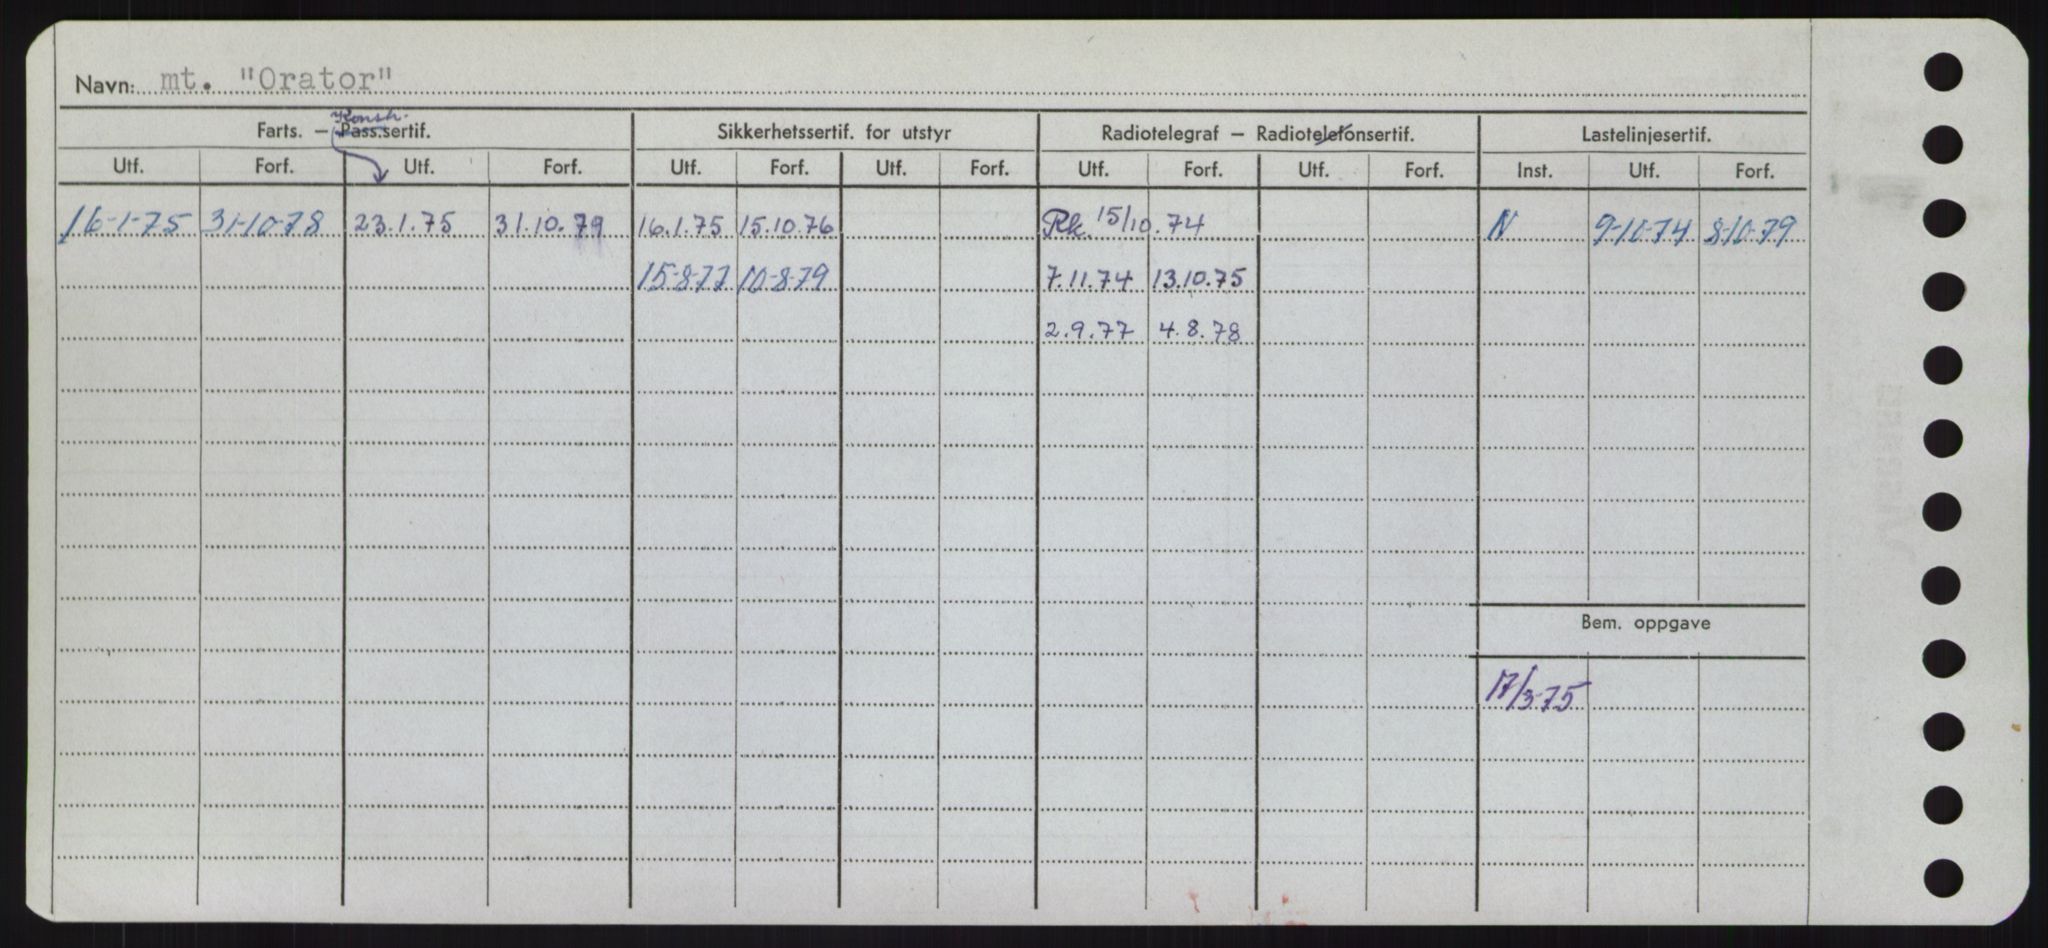 Navn: mt. "Orator"
Konstr.
Farts. – Pass.sertif. Sikkerhetssertif. for utstyr Radiotelegraf – Radiotelefonsertif. Lastelinjesertif.
Utf. Forf. Utf. Forf. Utf. Forf. Utf. Forf. Utf. Forf. Utf. Forf. Inst. Utf. Forf.
16-1-75 31-10-78 23.1.75 31.10.79 16.1.75 15.10.76 Rk. 15/10.74 N 9-10-74 8-10-79
15-8-77 10-8-79 7.11.74 13.10.75
2.9.77 4.8.78
Bem. oppgave
17/3-75